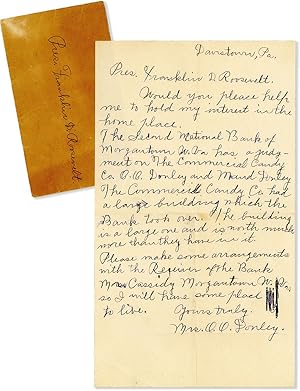 Pres. Franklin D. Roosevelt
Davistown, Pa.
Pres. Franklin D. Roosevelt.
Would you please help
me to hold my interest in the
home place.
The Second National Bank of
Morgantown W. Va has a judg-
ment on The Commercial Candy
Co. O.O. Donley and Maud Donley
The Commercial Candy Co had
a large building which the
Bank took over. The building
is a large one and is worth much
more than they have in it.
Please make some arrangements
with the Reciever of the Bank
Cassidy Morgantown W. Va.
so I will have some place
to live.
Yours truly.
Mrs. O.O. Donley.